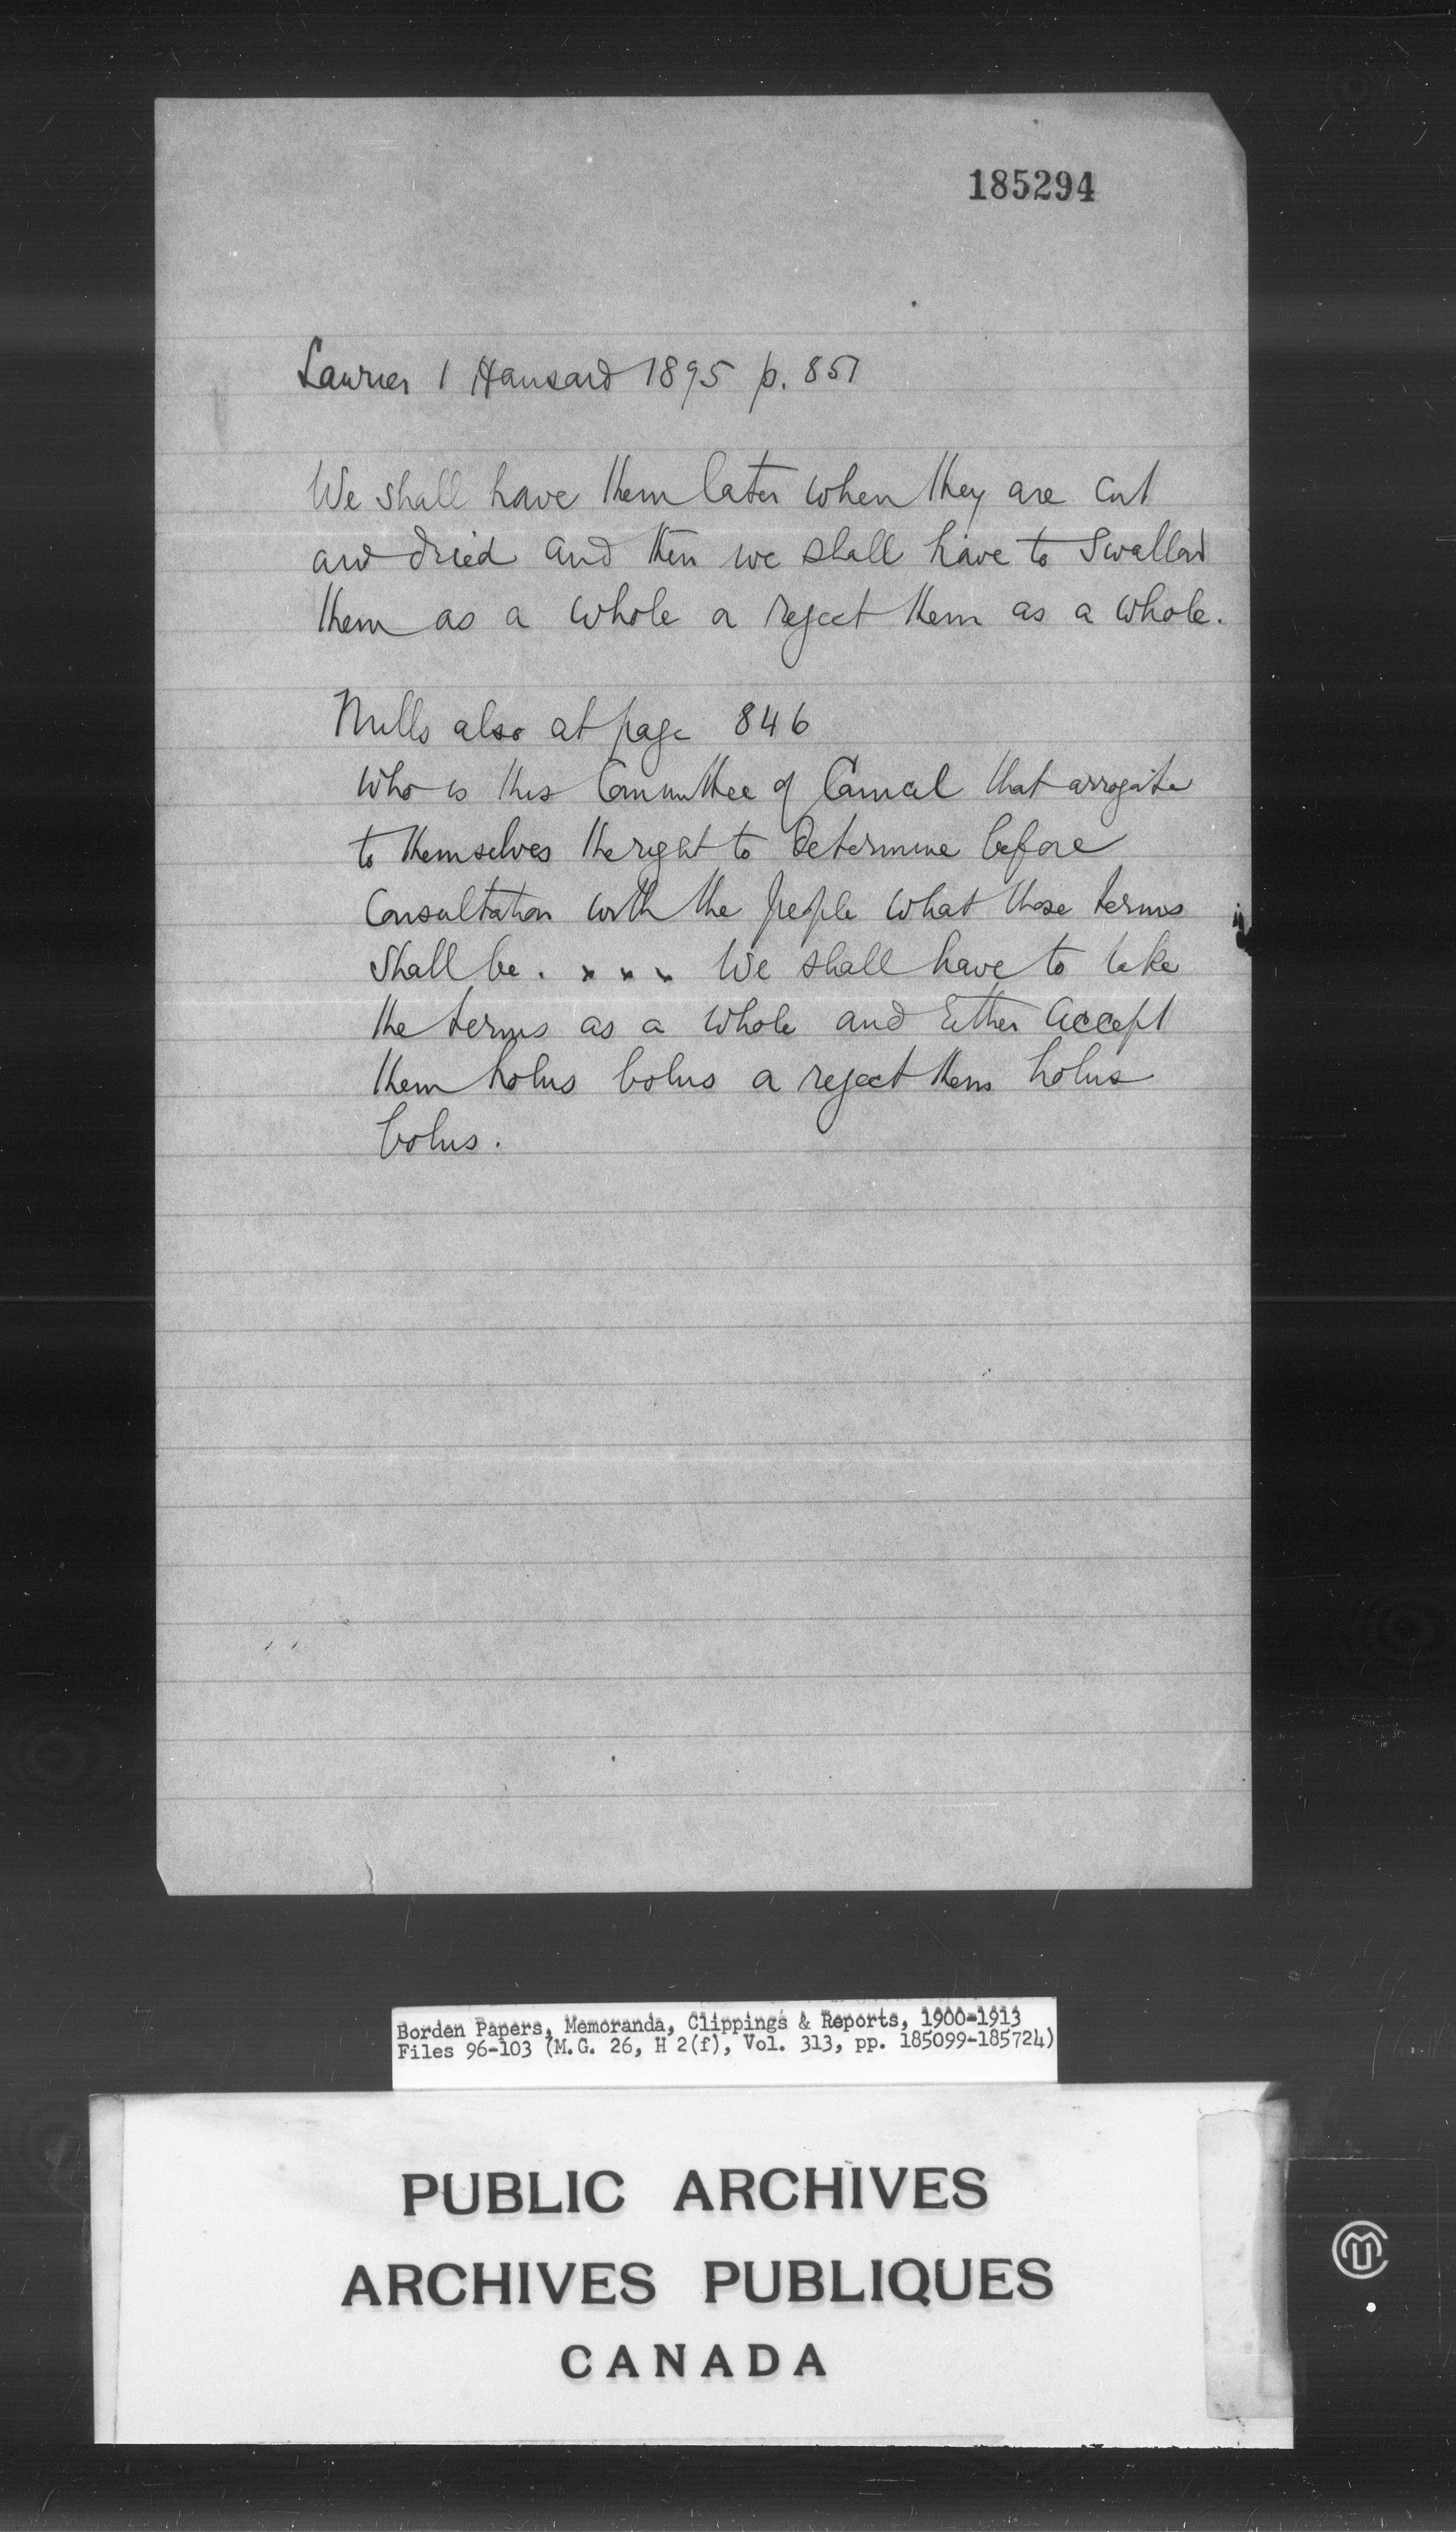 185294
Laurier 1 Hansard 1895 p. 851
We shall have them later when they are cut
and dried and then we shall have to swallow
them as a whole or reject them as a whole.
Mills also at page 846
Who is this Committee of Council that arrogate
to themselves the right to determine before
Consultation with the people what those terms
shall be. x x x x We shall have to take
the terms as a whole and Either accept
them holus bolus or reject them holus
bolus.
Borden Papers, Memoranda, Clippings & Reports, 1900-1913
Files 96-103 (M.G. 26, H 2(f), Vol. 313, pp. 185099-185724)
PUBLIC ARCHIVES
ARCHIVES PUBLIQUES
CANADA